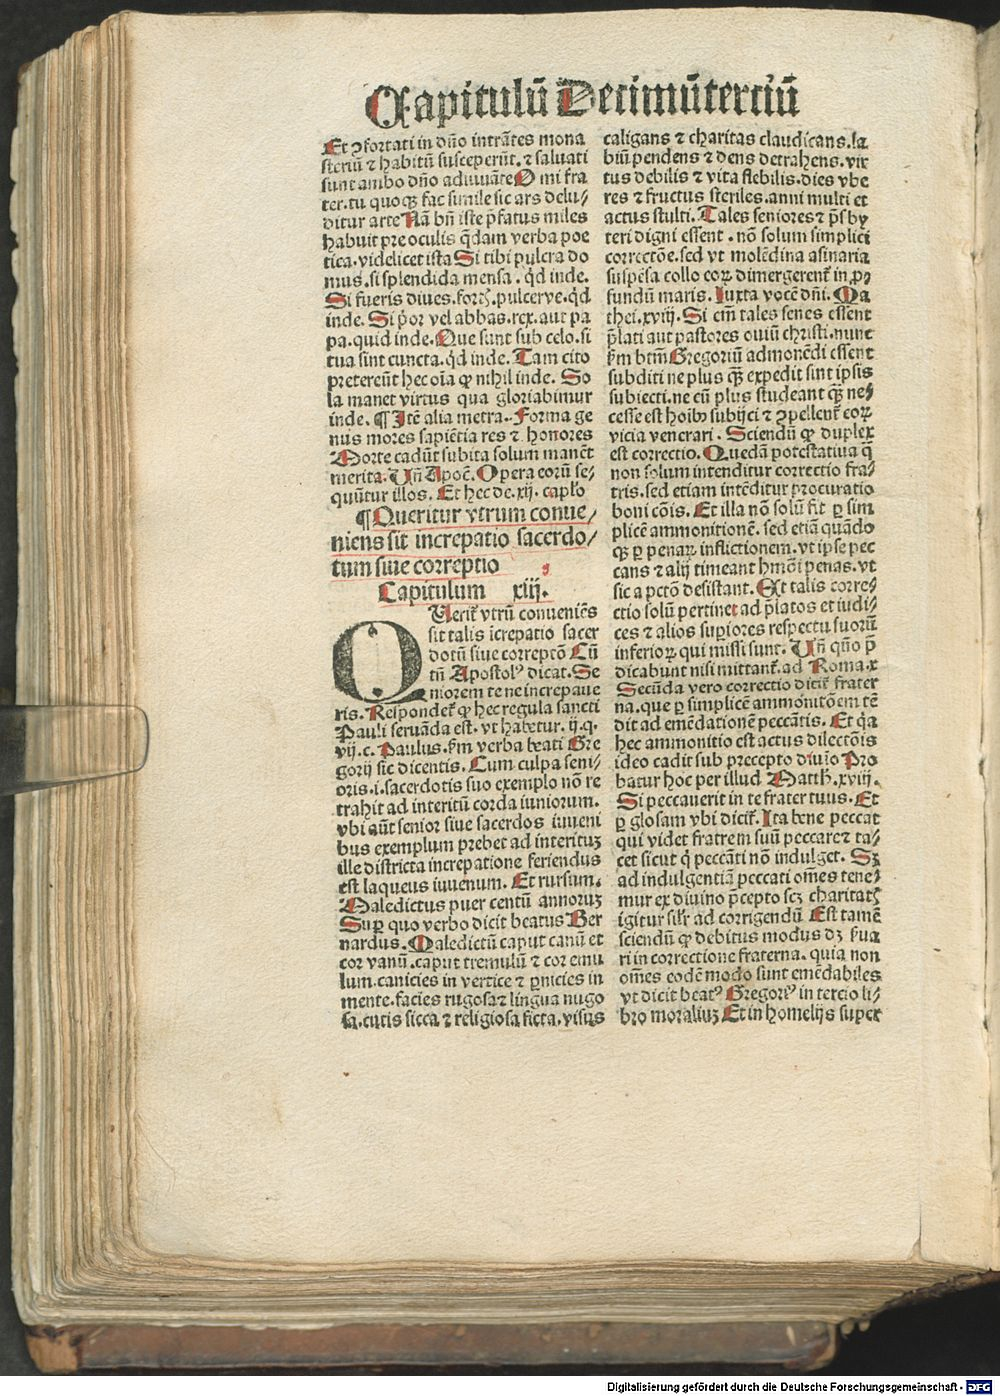 Capitulū Decimūterciū
Et ꝯfortati in dño intrātes mona
steriū ⁊ habitū susceperūt. ⁊ saluati
sunt ambo dño adiuuāte O mi fra
ter. tu quoqꝫ fac simile sic ars delu/
ditur arte Nā bñ iste p̄fatus miles
habuit pre oculis q̄dam verba poe
tica. videlicet ista Si tibi pulcra do
mus. si splendida mensa. qͥd inde.
Si fueris diues. fortꝭ. pulcerve. qͥd
inde. Si p̓or vel abbas. rex. aut pa
pa. quid inde. Que sunt sub celo. si
tua sint cuncta. qͥd inde. Tam cito
pretereūt hec oīa ꝙ nihil inde. So
la manet virtus qua gloriabimur
inde. ¶ Itē alia metra. Forma ge
nus mores sapiētia res ⁊ honores
Morte cadūt subita solum manēt
merita. Uñ Apoč. Opera eorū se-
quūtur illos. Et hec de. xij. caplo
¶ Queritur vtrum conue/
niens sit increpatio sacerdo/
tum siue correptio
Capitulum xiij.
QUerit᷑ vtrū conueniēs
sit talis īcrepatio sacer
dotū siue correptō Cū
tñ Apostolꝰ dicat. Se
niorem te ne increpaue
ris. Respondet᷑ ꝙ hec regula sancti
Pauli seruāda est. vt habetur. ij. q.
vij. c. Paulus. ẜm verba beati Gre
gorij sic dicentis. Cum culpa seni/
oris. i. sacerdotis suo exemplo nō re
trahit ad interitū corda iuniorum.
vbi aūt senior siue sacerdos iuueni
bus exemplum prebet ad interituꝫ
ille districta increpatione feriendus
est laqueus iuuenum. Et rursum.
Maledictus puer centū annoruꝫ
Suꝑ quo verbo dicit beatus Ber
nardus. Maledictū caput canū et
cor vanū. caput tremulū ⁊ cor emu
lum. canicies in vertice ⁊ ꝑnicies in
mente. facies rugosa ⁊ lingua nugo
sa. cutis sicca ⁊ religiosa ficta. visus
caligans ⁊ charitas claudicans. la
biū pendens ⁊ dens detrahens. vir
tus debilis ⁊ vita flebilis. dies vbe
res ⁊ fructus steriles. anni multi et
actus stulti. Tales seniores ⁊ p̄sby
teri digni essent. nō solum simplici
correctōe. sed vt molēdina asinaria
suspēsa collo eoꝝ dimergerent᷑ in ꝓ
fundū maris. Iuxta vocē dñi. Ma
thei. xviij. Si em̄ tales senes essent
p̄lati aut pastores ouiū christi. nunc
ẜm btm̄ Gregoriū admonēdi essent
subditi ne plus qꝫ expedit sint ipsis
subiecti. ne cū plus studeant qꝫ ne/
cesse est hoībꝰ subijci ⁊ ꝯpellent᷑ eoꝝ
vicia venerari. Sciendū ꝙ duplex
est correctio. Quedā potestatiua q̄
non solum intenditur correctio fra/
tris. sed etiam intēditur procuratio
boni cōis. Et illa nō solū fit ꝑ sim
plicē ammonitionē. sed etiā quādo
qꝫ ꝑ penaꝝ inflictionem. vt ipse pec
cans ⁊ alij timeant hmōi penas. vt
sic a pctō desistant. Et talis corre/
ctio solū pertinet ad p̄latos et iudi/
ces ⁊ alios suꝑiores respectu suorū
inferioꝝ qui missi sunt. Uñ quō p̄
dicabunt nisi mittant᷑. ad Roma. x
Secūda vero correctio dicit᷑ frater
na. que ꝑ simplicē ammonitōem tē
dit ad emēdationē peccātis. Et qͥa
hec ammonitio est actus dilectōis
ideo cadit sub precepto diuīo Pro
batur hoc per illud Matth. xviij.
Si peccauerit in te frater tuus. Et
ꝑ glosam vbi dicit᷑. Ita bene peccat
qui videt fratrem suū peccare ⁊ ta/
cet sicut qͥ peccāti nō indulget. Sꝫ
ad indulgentiā peccati om̄es tene/
mur ex diuino p̄cepto scꝫ charitatꝭ
igitur silr̄ ad corrigendū Est tamē
sciendū ꝙ debitus modus dꝫ ẜua
ri in correctione fraterna. quia non
om̄es eodē modo sunt emēdabiles
vt dicit beatꝰ Gregoriꝰ in tercio li/
bro moraliuꝫ Et in homelijs super
Digitalisierung gefördert durch die Deutsche Forschungsgemeinschaft - DFG